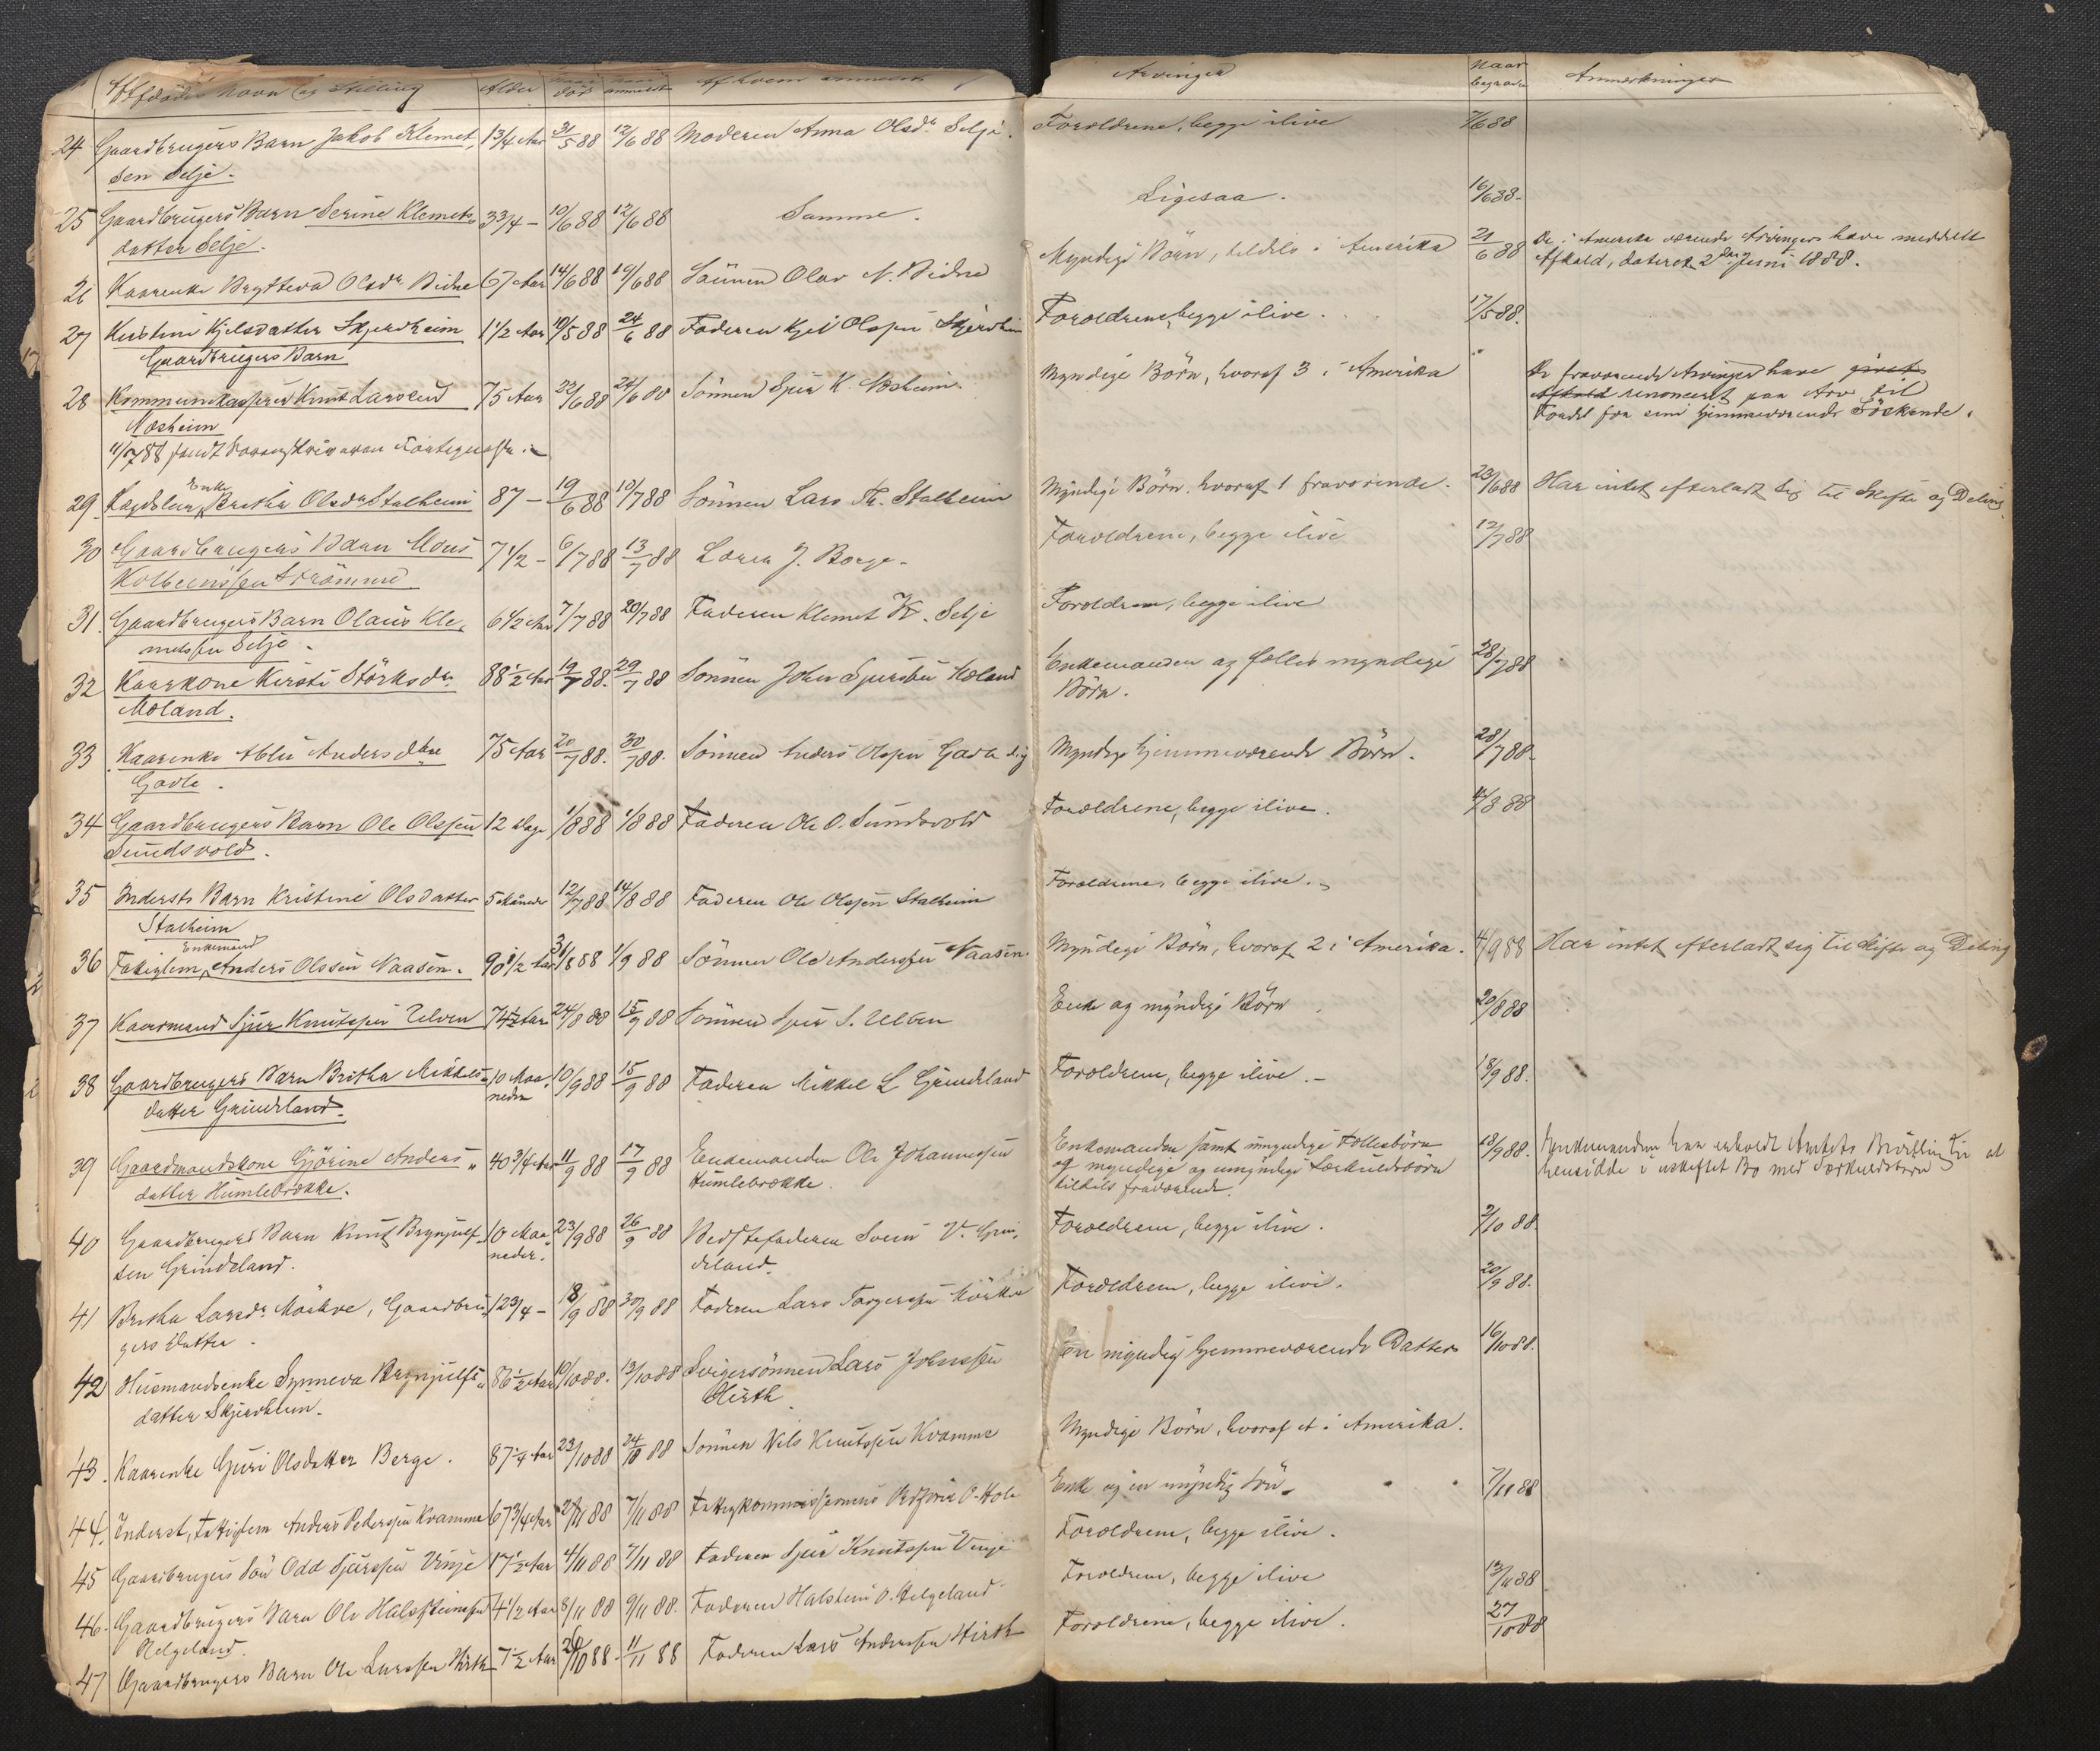 Afdødes Navn og Stilling Alder naar død naar anmeldt Af hvem anmeldt Arvinger Naar begravet Anmerkninger
24 Gaardbrugers Barn Jakob Klemet, 1 3/4 Aar 31/5 88 12/6 88 Moderen Anna Olsdr Selje. Forældrene, begge ilive 7/6 88
sen Selje.
25 Gaardbrugers Barn Serine Klemets 3 3/4 - 10/6 88 12/6 88 Samme. Ligesaa. 16/6 88.
datter Selje.
26 Kaarenke Brytteva Olsdr Bidne 67 Aar 14/6 88 19/6 88 Sønnen Olav N. Bidne Myndige Børn, tildels i Amerika 21/6 88 De i Amerika værende Arvinger have meddelt
Afkald, dateret 2den Juni 1888.
27 Kristine Kjelsdatter Skjerdheim 1 1/2 Aar 10/5 88 24/6 88 Faderen Kjel Olssen Skjerdheim Forældrene, begge ilive. 17/5 88.
Gaardbrugers Barn
28 Kommunekasserer Knut Larssen 75 Aar 22/6 88 24/6 88 Sønnen Sjur K. Næsheim. Myndige Børn, hvoraf 3 i Amerika De fraværende Arvinger have givet
Næsheim Afkald renonceret paa Arv til
Fordel for sine hjemmeværende Søskende.
11/7 88 sendt Sorenskriveren
29 Lægdslem, Enke Britha Olsdr Stalheim 87 - 19/6 88 10/7 88 Sønnen Lars Th. Stalheim Myndige Børn, hvoraf 1 fraværende. 23/6 88 Har intet efterladt sig til Skifte og Deling.
30 Gaardbrugers Barn Mons 7 1/2 - 6/7 88 13/7 88 Lærer J. Borge. Forældrene, begge ilive 12/7 88
Kolbeinssen Strømme
31. Gaardbrugers Barn Olaus Kle, 6 1/2 Aar 7/7 88 20/7 88 Faderen Klemet K. Selje Forældrene, begge ilive
metssen Selje.
32 Kaarkone Kirsti Størksdr 88 1/2 Aar 19/7 88. 29/7 88 Sønnen John Sjurssen Møland Enkemanden og fælles myndige 28/7 88
Møland. Børn.
33 Kaarenke Ablu Andersdtre 75 Aar 20/7 88. 30/7 88. Sønnen Anders Olssen Gavle Myndige hjemmeværende Børn. 28/7 88.
Gavle.
34 Gaardbrugers Barn Ole Olssen 12 Dage 1/8 88 1/8 88 Faderen Ole O. Sundsvold Forældrene, begge ilive. 4/8 88
Sundsvold.
35 Inderste Barn Kristine Olsdatter 5 Maaneder 12/7 88 14/8 88 Faderen Ole Olssen Stalheim Forældrene, begge ilive.
Stalheim
36 Fattiglem, Enkemand Anders Olssen Naasen. 90 1/2 Aar 31/8 88 1/9 88 Sønnen Ole Anderssen Naasen. Myndige Børn, hvoraf 2 i Amerika. 4/9 88 Har intet efterladt sig til Skifte og Deling
37 Kaarmand Sjur Knutssen Ulven 74 1/2 Aar 24/8 88 15/9 88 Sønnen Sjur S. Ulven Enke og myndige Børn 20/8 88
38 Gaardbrugers Barn Britha Mikkels 10 Maa 10/9 88 15/9 88 Faderen Mikkel L Grindeland Forældrene, begge ilive. 18/9 88.
datter Grindeland. neder
39 Gaardmandskone Gjørine Anders 40 3/4 Aar 11/9 88 17/9 88 Enkemanden Ole Johannessen Enkemanden samt umyndige Fællesbørn 18/9 88. Enkemanden har erholdt Amtets Bevilling til at
datter Humlebrække. Humlebrække. og myndige og umyndige Særkuldsbørn hensidde i uskiftet Bo med Særkuldsbørn
tildels fraværende.
40 Gaardbrugers Barn Knut Brynjulf 10 Maa 23/9 88 26/9 88 Bedstefaderen Svein V. Grin, Forældrene, begge ilive. 2/10 88
sen Grindeland. neder. deland.
41 Britha Larsdr Mørkve, Gaardbru 12 3/4 - 18/9 88 30/9 88 Faderen Lars Torgerssen Mørkve Forældrene, begge ilive. 20/9 88.
gers Datter.
42 Husmandsenke Synneva Brynjulfs 86 1/2 Aar 10/10 88. 13/10 88 Svigersønnen Lars Johnssen En myndig hjemmeværende Datter 16/10 88.
datter Skjerdheim. Hirth
43. Kaarenke Guri Olsdatter Berge. 87 1/4 Aar 23/10 88 24/10 88 Sønnen Nils Knutssen Kvamme Myndige Børn, hvoraf et i Amerika.
44. Inderst, Fattiglem Anders Pederssen Kvamme 67 3/4 Aar 2/11 88 7/11 88 Fattigkommissionens Ordfører O. Hole Enke og en myndig Søn. 7/11 88
45 Gaardbrugers Søn Odd Sjurssen Vinje 17 1/2 Aar 4/11 88 7/11 88 Faderen Sjur Knutssen Vinje Forældrene, begge ilive.
46. Gaardbrugers Barn Ole Halsteinssen 4 1/2 Aar 8/11 88 9/11 88. Faderen Halstein O. Helgeland Forældrene, begge ilive 13/11 88
Helgeland.
47 Gaardbrugers Barn Ole Larssen Hirth 7 1/2 Aar 20/10 88. 11/11 88 Faderen Lars Anderssen Hirth Forældrene, begge ilive. 27/10 88